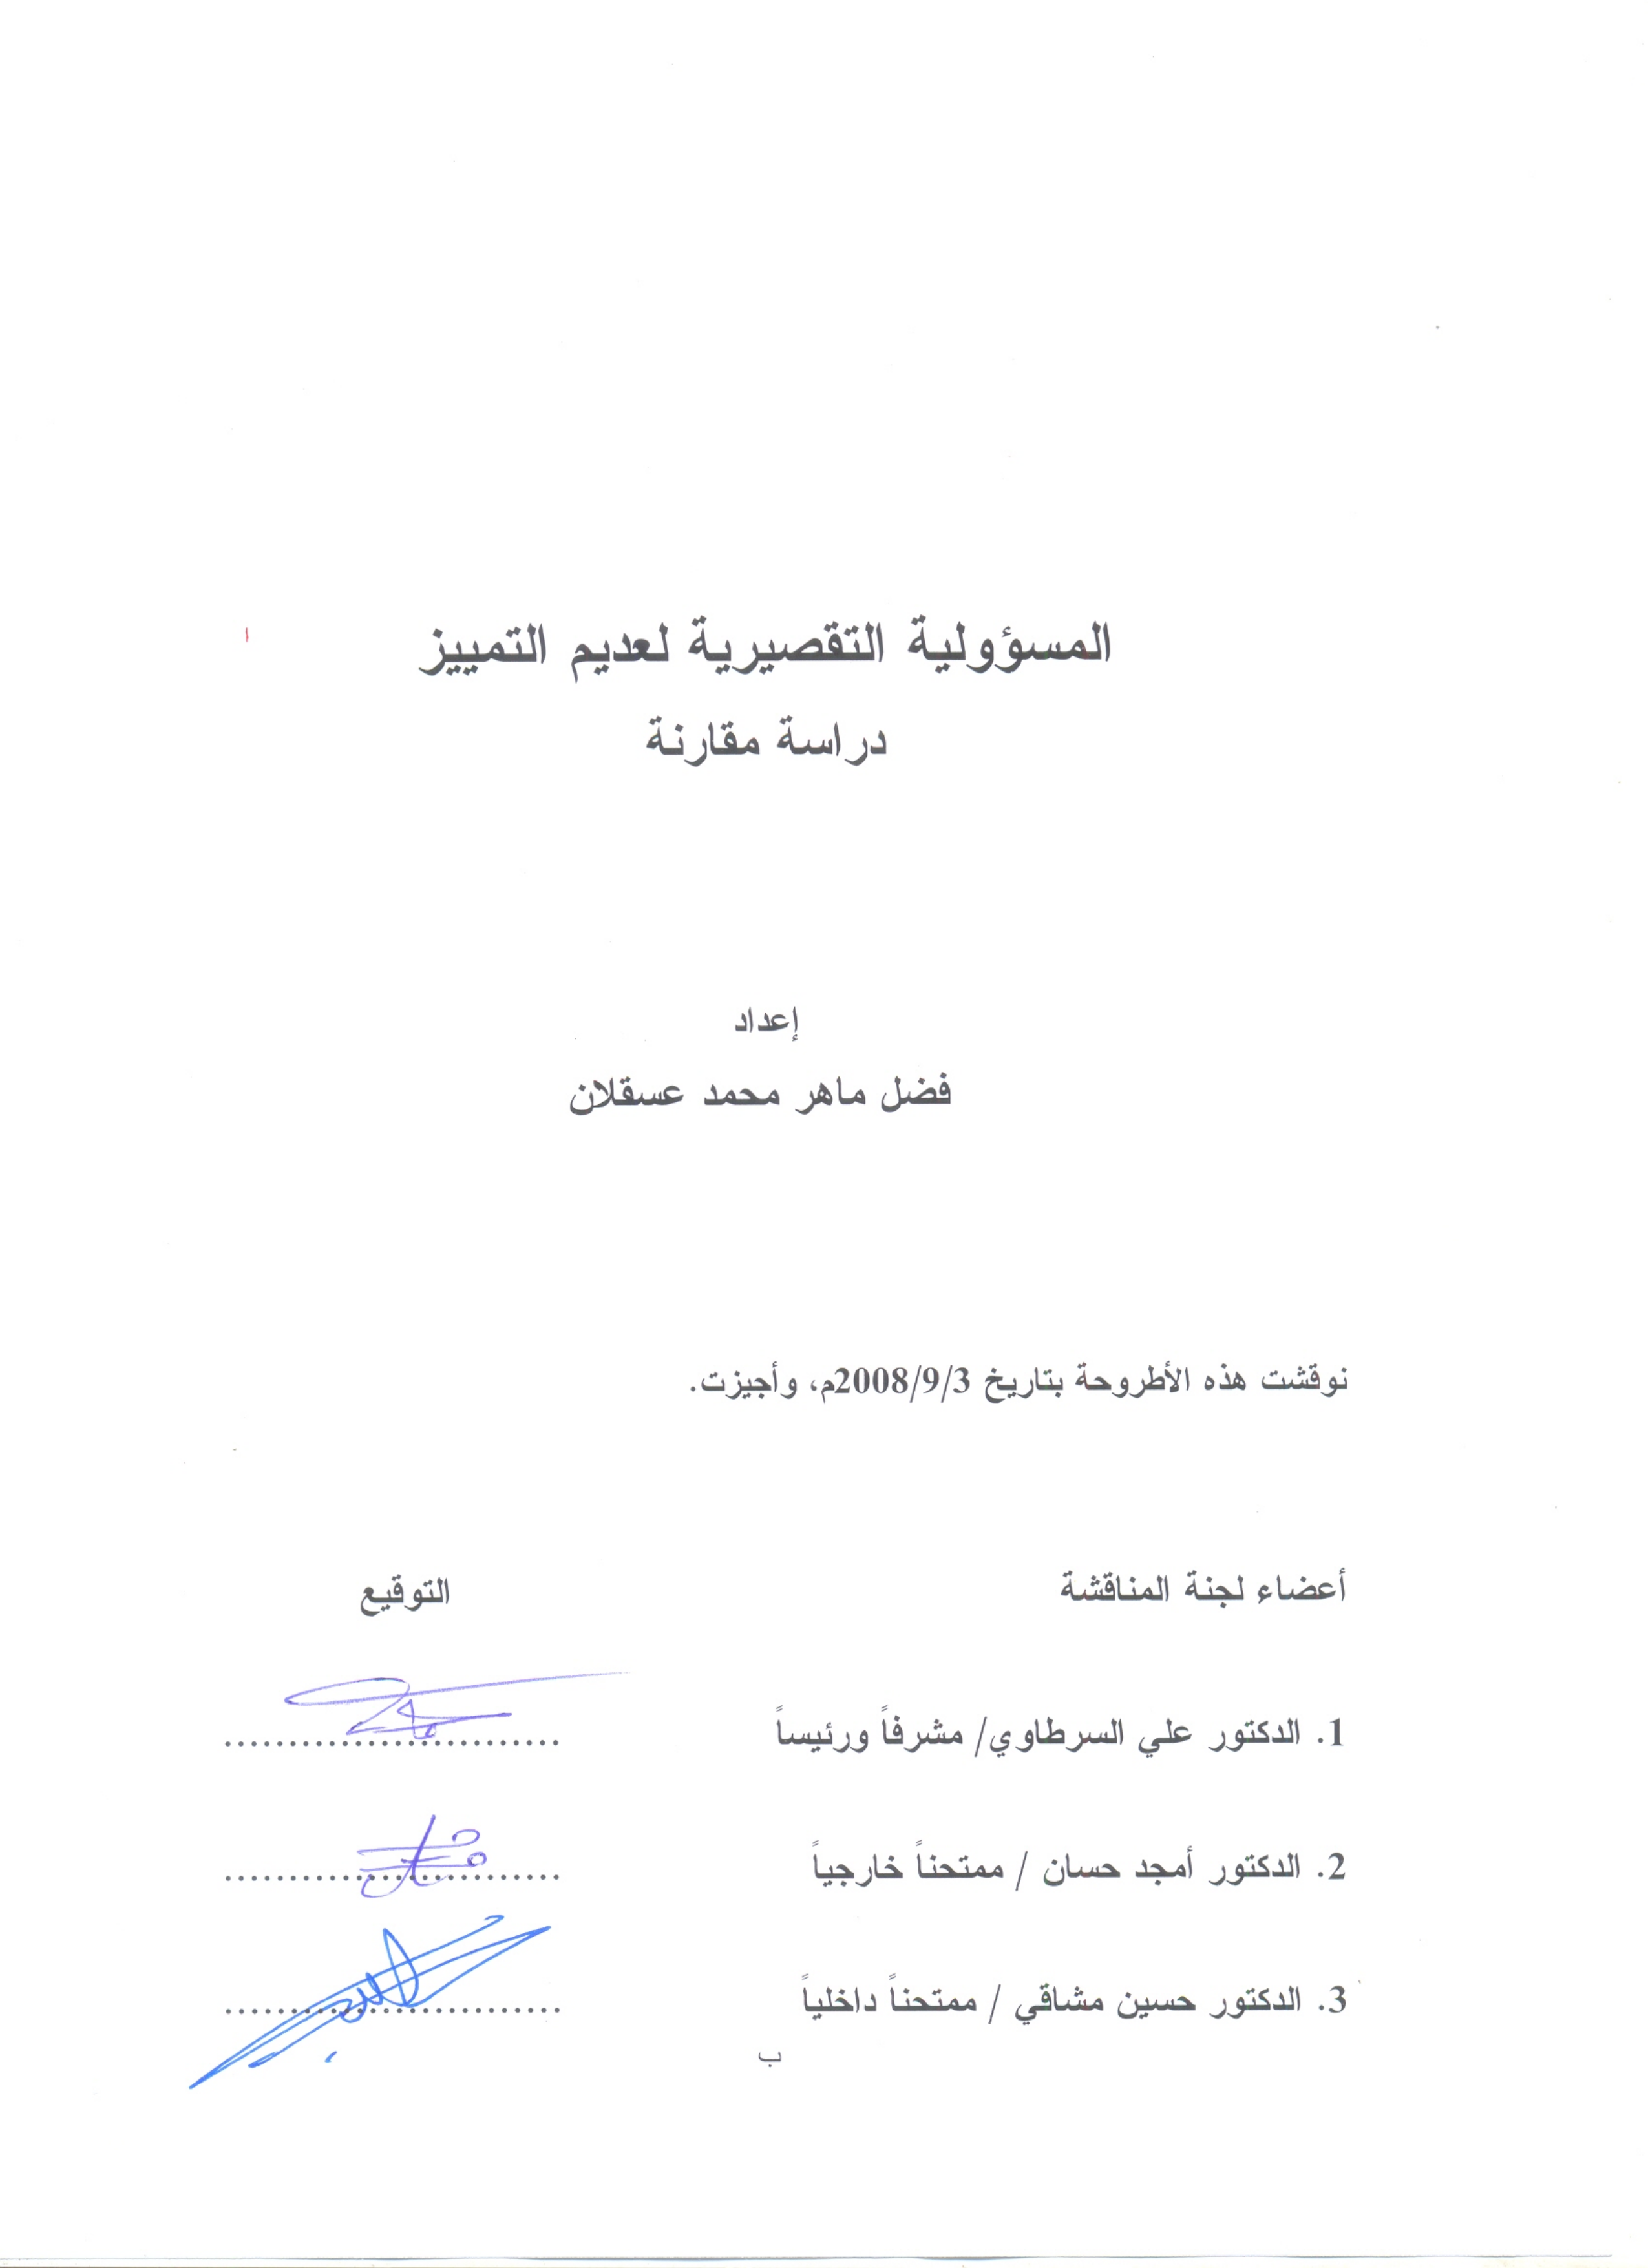 المسؤولية التقصيرية لعديم التمييز
دراسة مقارنة
إعداد
فضل ماهر محمد عسقلان
نوقشت هذه الأطروحة بتاريخ 2008/9/3م، وأجيزت.
أعضاء لجنة المناقشة التوقيع
1. الدكتور علي السرطاوي/ مشرفاً ورئيساً ..........................
2. الدكتور أمجد حسان / ممتحناً خارجياً ..........................
3. الدكتور حسين مشاقي / ممتحناً داخلياً ..........................
ب